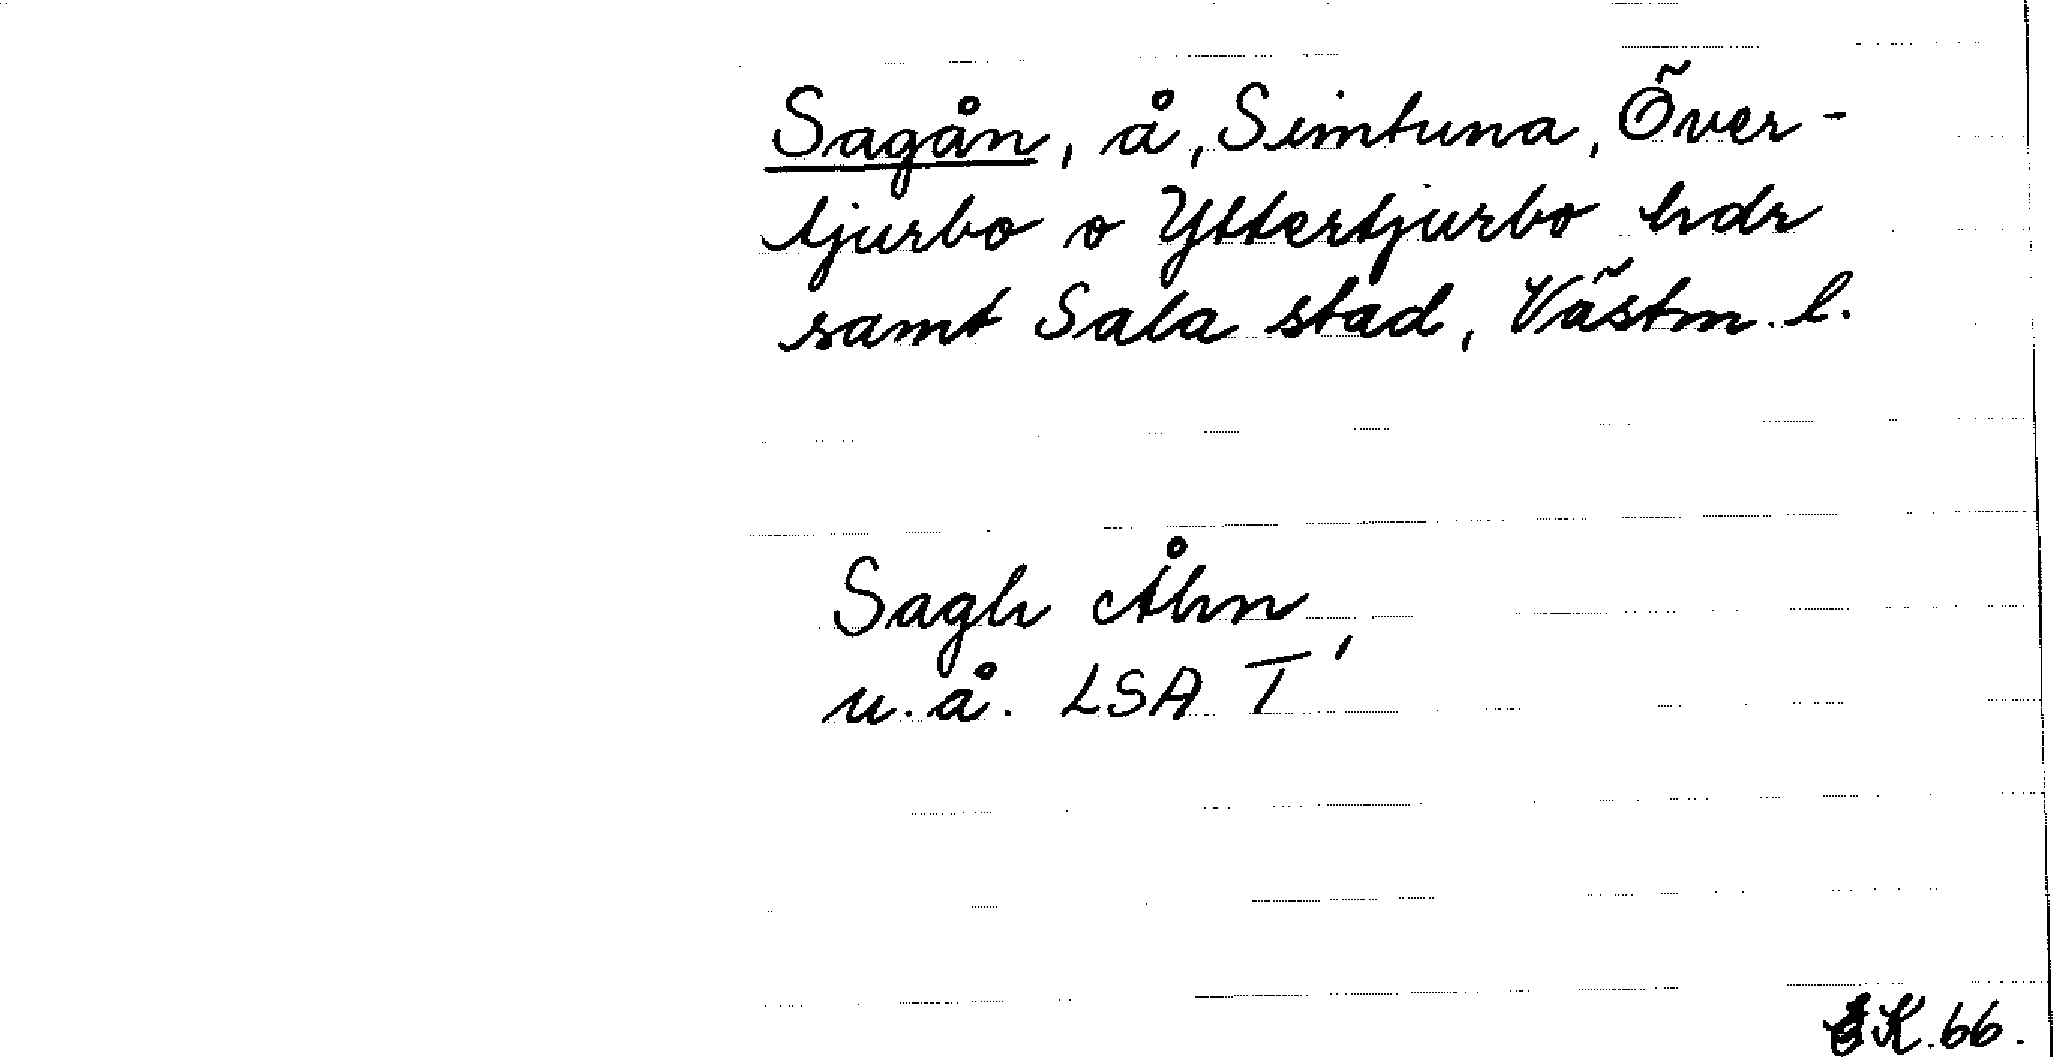 Sagån, å, Simtuna, Över-
tjurbo o Yttertjurbo hdr
samt Sala stad, Västm. l.
Sagh Åhn,
u. å. LSA T
K. 66.